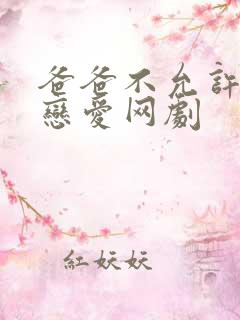 爸爸不允許
戀愛网劇
紅妖妖